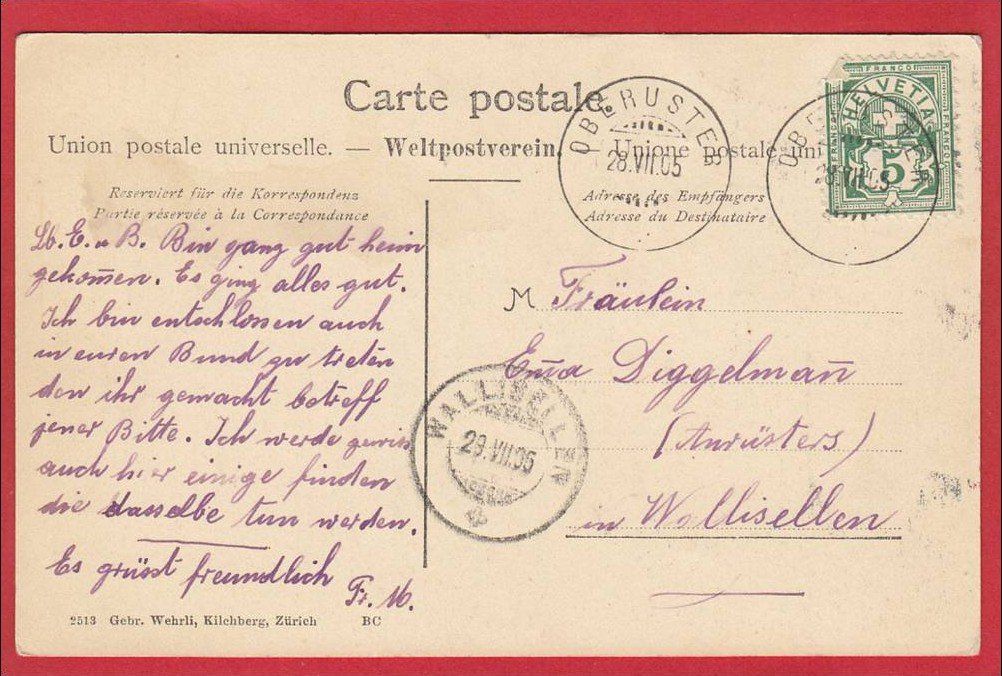 Carte postale.
Union postale universelle. — Weltpostverein. — Unione postale uni
Reserviert für die Korrespondenz
Partie réservée à la Correspondance
Adresse des Empfängers
Adresse du Destinataire
FRANCO
HELVETIA
FRANCO
FRANCO
5
OBERUSTER
28.VII.05
OBERUSTER
28.VII.05
Lb. E. u B. Bin ganz gut heim
gekom̅en. Es ging alles gut.
Ich bin entschlossen auch
in euren Bund zu treten
den ihr gemacht betreff
jener Bitte. Ich werde gewiss
auch hier einige finden
die dasselbe tun werden.
Es grüsst freundlich
Fr. M.
M Fräulein
Em̅a Diggelman̅
(Anrüsters)
in Wallisellen
WALLISELLEN
29.VII.05
2513 Gebr. Wehrli, Kilchberg, Zürich BC